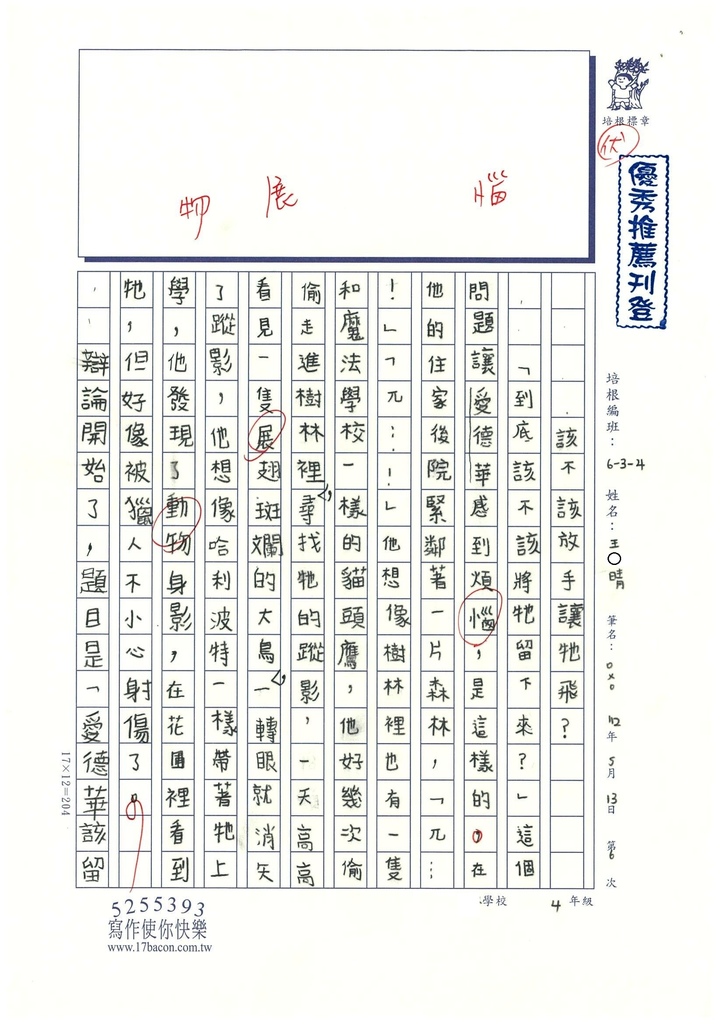 培根標章
伏
優秀推薦刊登
培根編班:6-3-4 姓名:王○晴 筆名:0x0 112年5月13日 第6次
惱
展
物
該不該放手讓牠飛?
「到底該不該將牠留下來?」這個
問題讓愛德華感到煩惱,是這樣的,在
他的住家後院緊鄰著一片森林,「ㄫ…
!」「ㄫ…!」他想像樹林裡也有一隻
和魔法學校一樣的貓頭鷹,他好幾次偷
偷走進樹林裡,尋找牠的蹤影,一天高高
看見一隻展翅斑斕的大鳥,一轉眼就消矢
了蹤影,他想像哈利波特一樣帶著牠上
學,他發現了動物身影,在花園裡看到
牠,但好像被獵人不小心射傷了。
辯論開始了,題目是「愛德華該留
學校 4年級
17×12=204
5255393
寫作使你快樂
www.17bacon.com.tw